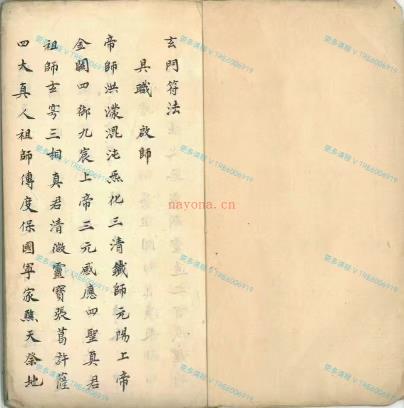 玄門符法
具職 啟師
帝師洪濛混沌炁化三清鐵師元陽上帝
金闕四御九宸上帝三元感應四聖真君
祖師玄穹三相真君清微靈寶張葛許薩
四大真人祖師傳度保國寧家醮天祭地
nayona.cn
更多课程 V TRE6006919